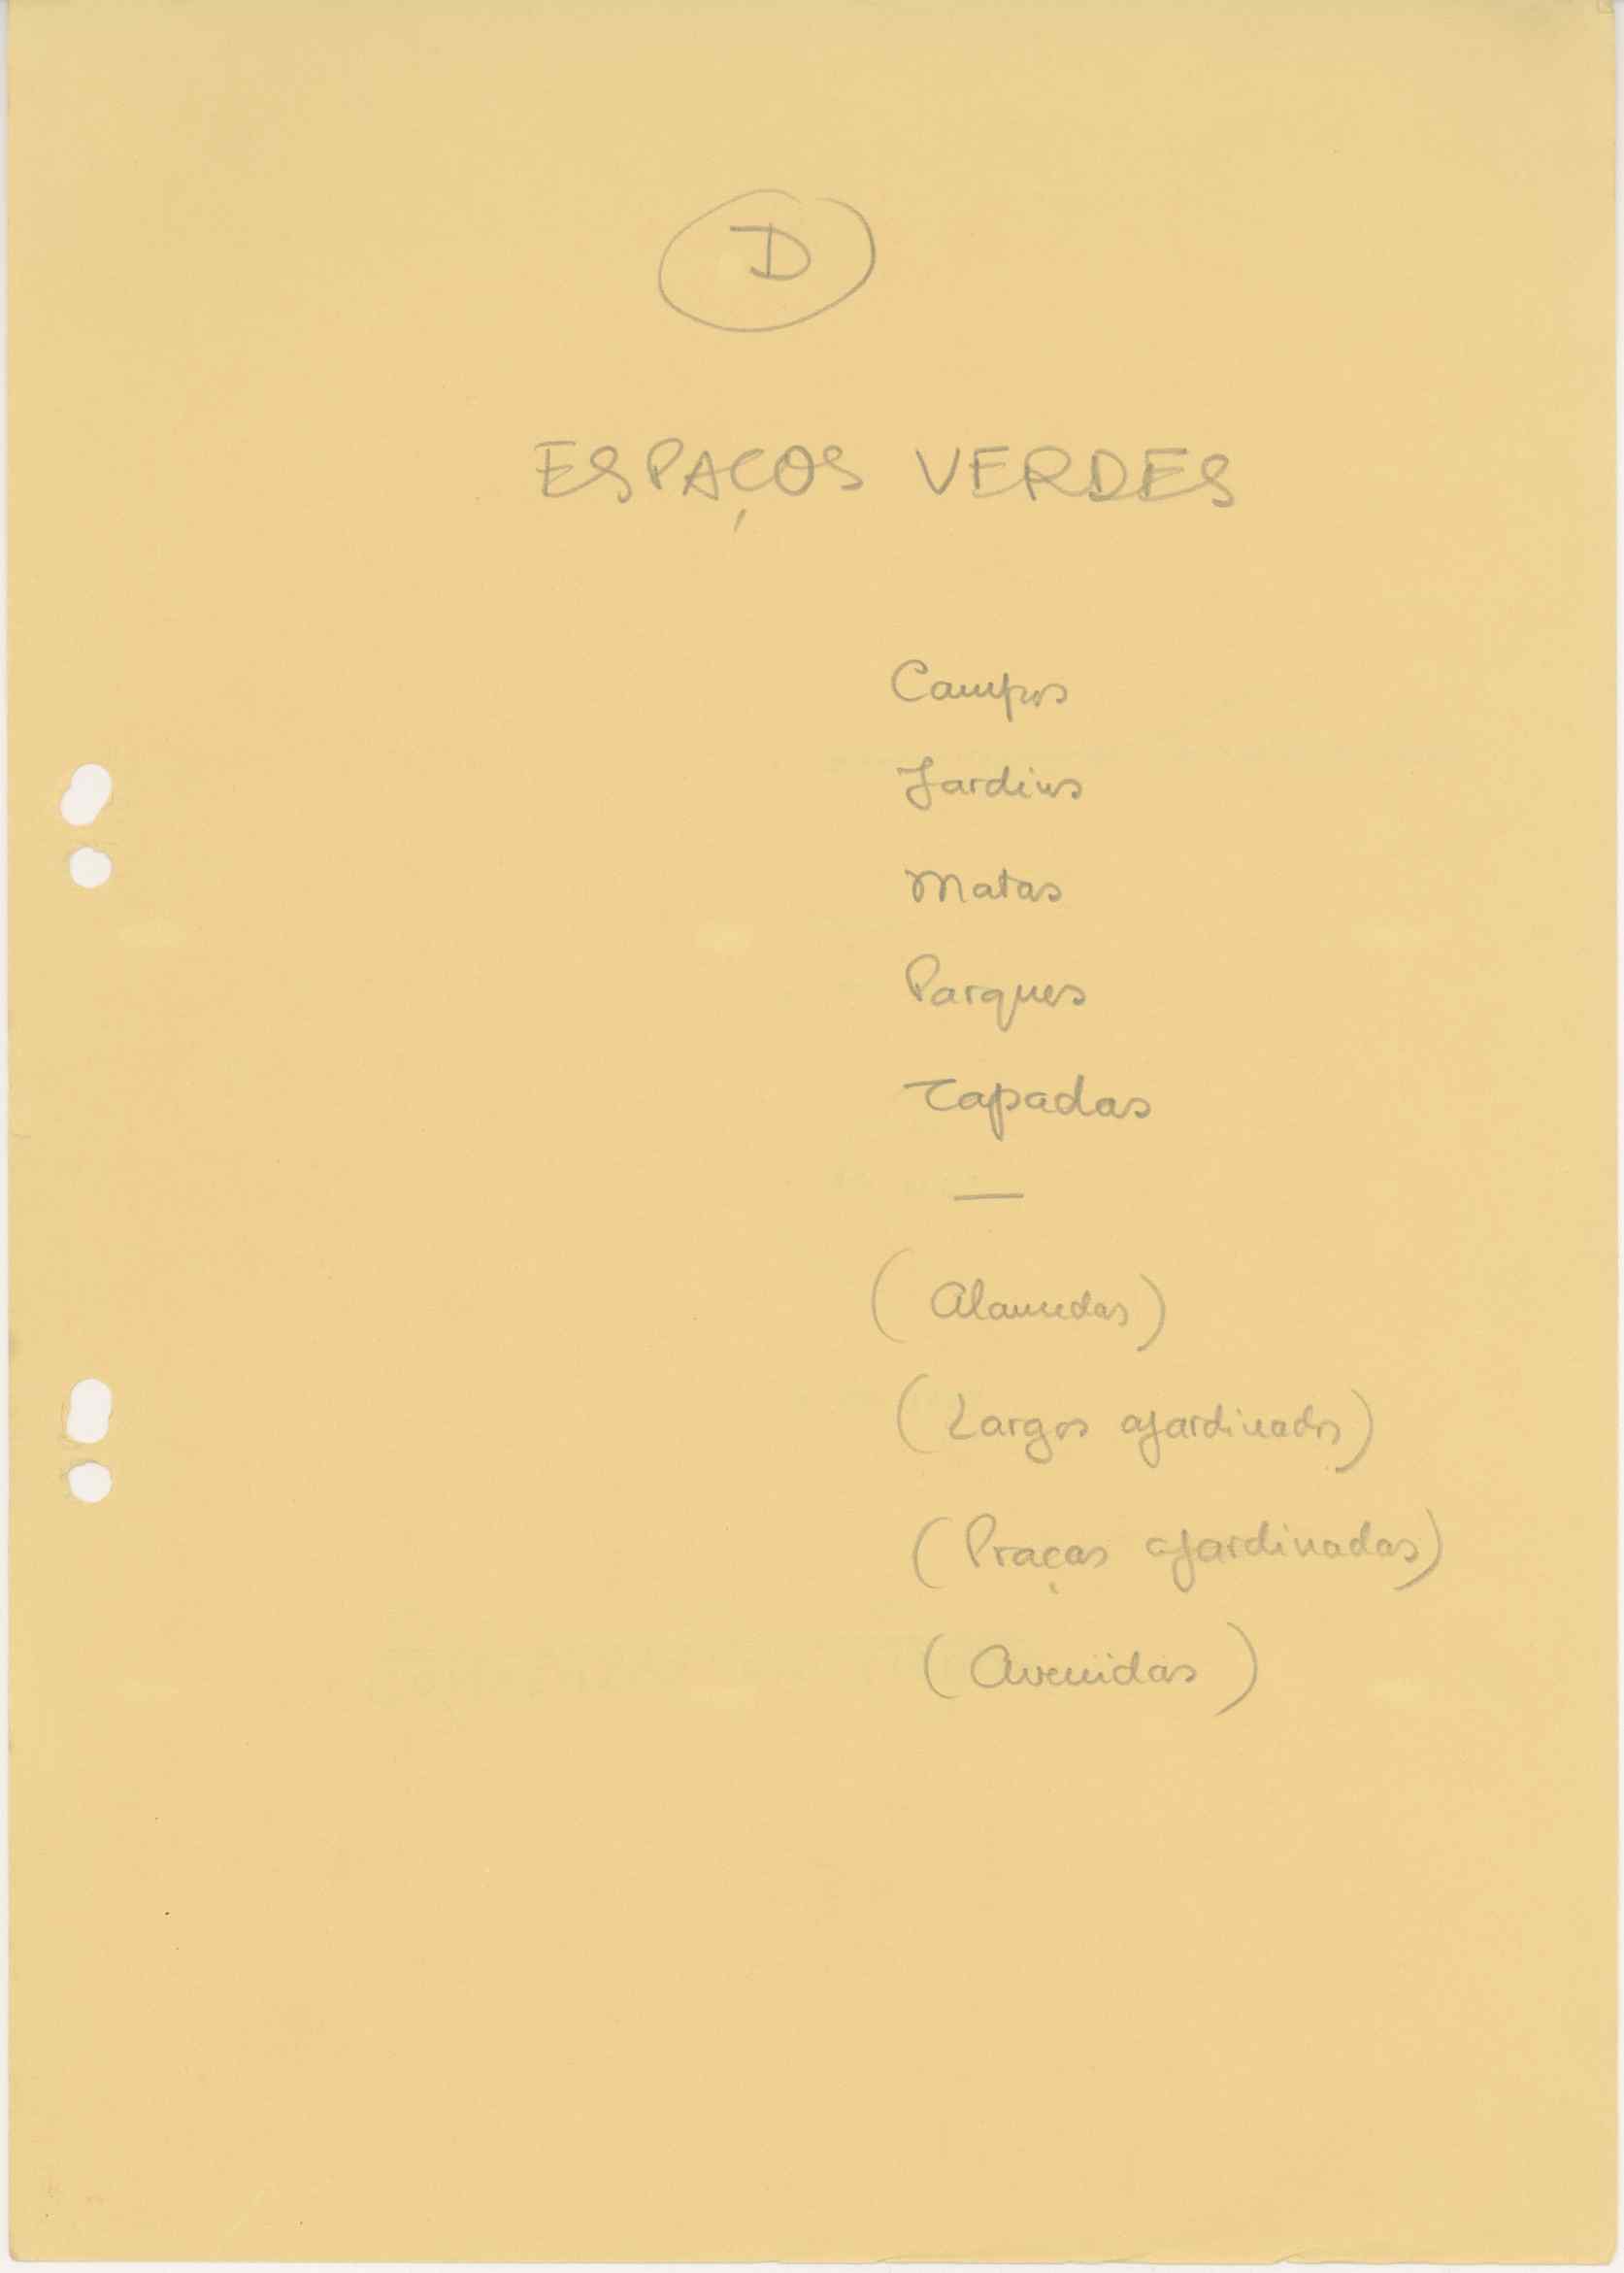 D
ESPAÇOS VERDES
Campos
Jardins
Matas
Parques
Tapadas
—
(Alamedas)
(Largos ajardinados)
(Praças ajardinadas)
(Avenidas)